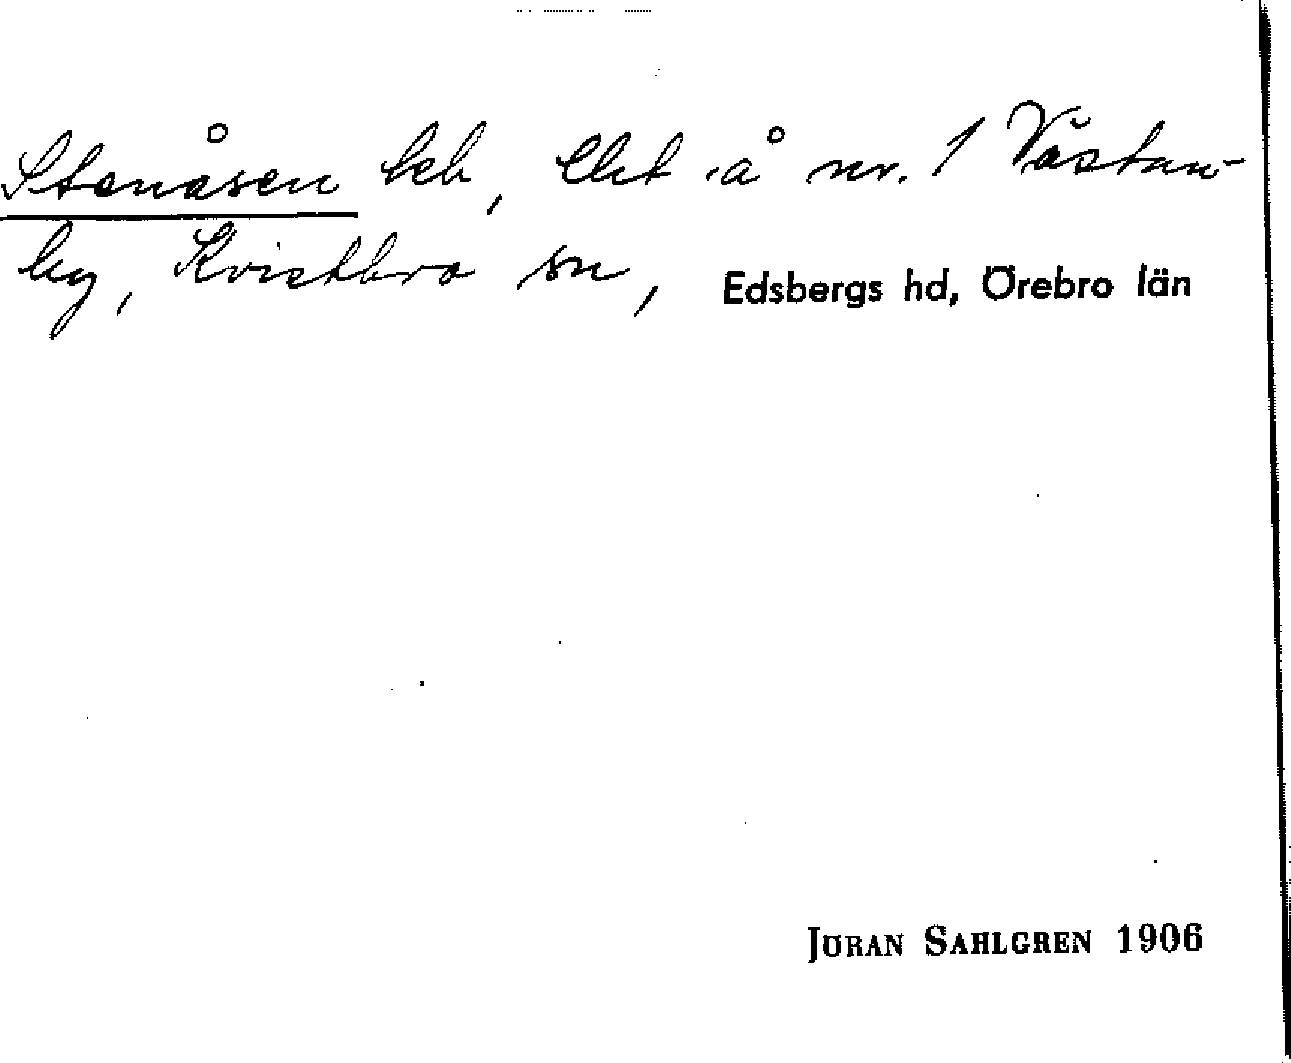 Stenåsen beb, Elit å nr. 1 Västan-
by, Kvistbro sn, Edsbergs hd, Örebro län
JÖRAN SAHLGREN 1906